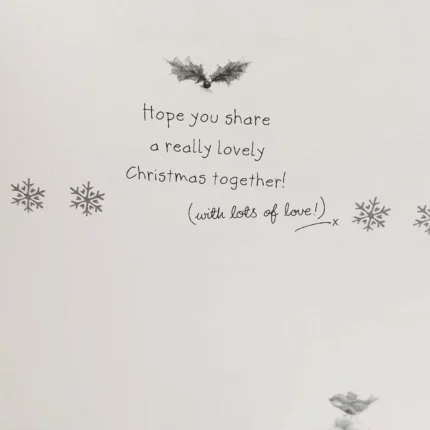 Hope you share
a really lovely
Christmas together!
(with lots of love!)
x